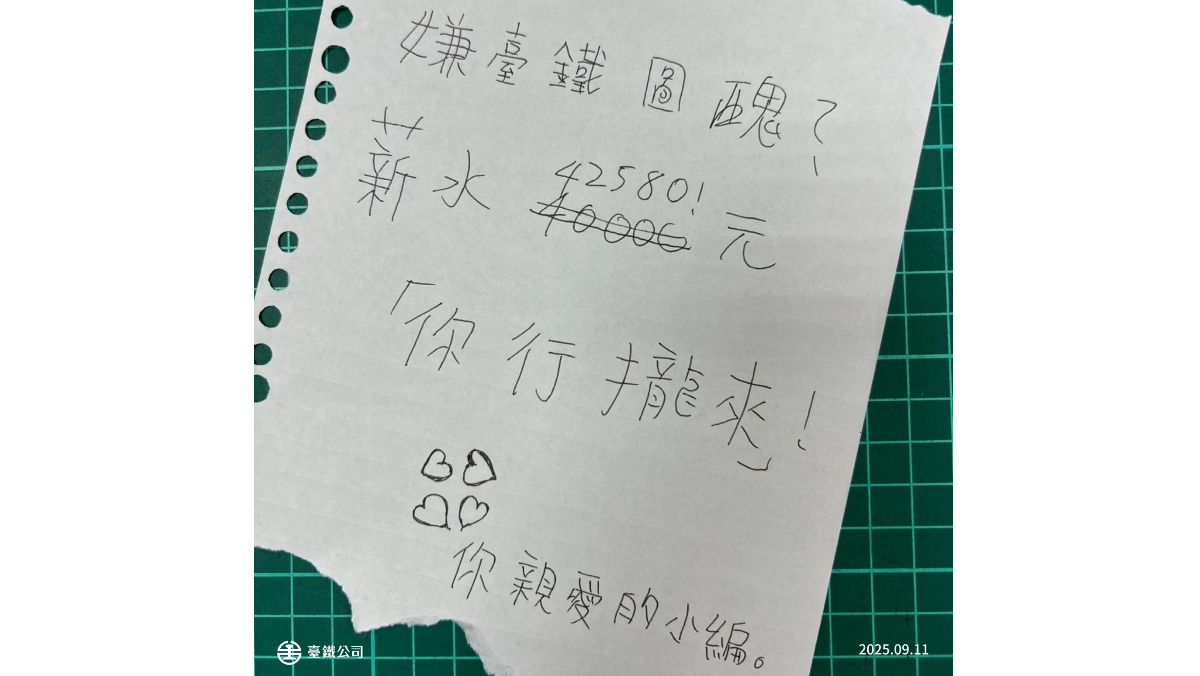 嫌臺鐵圖醜？
薪水 42580! 40000 元
「你行攏來」！
你親愛的小編。
臺鐵公司
2025.09.11